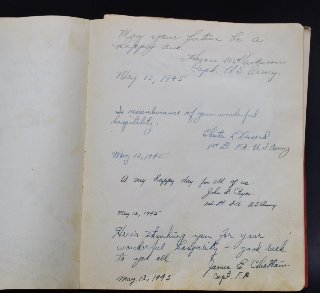 May your future be a
happy one
Capt. U.S. Army
May 12, 1945
In remembrance of your wonderful
hospitality.
1st Lt. F.A. U.S. Army
May 12, 1945.
A very happy day for all of us.
John
1st Lt. F.A. U.S. Army
May 12, 1945
Here is thanking you for your
wonderful hospitality - good luck
to you all.
James E. Cheatham
Capt. F.A.
May 12, 1945